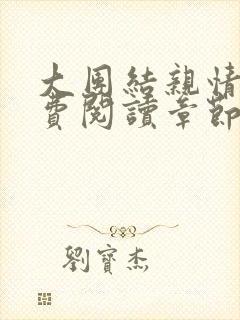 大團結親情
費閱讀章節
劉寶杰